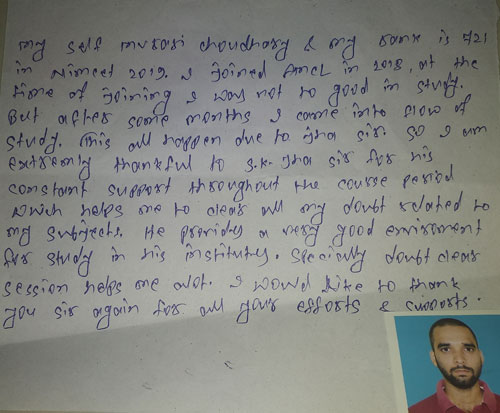 my self murari choudhary & my rank is 721
in Nimcet 2019. I joined AMCL in 2018, at the
time of joining I was not to good in study.
But after some months I come into flow of
study. This all happen due to Jha sir. So I am
extremly thankful to S.K. Jha sir for his
constant support throughout the course period
which helps me to clear all my doubt related to
my subjects. He provides a very good enviroment
for study in his institutes. Specially doubt clear
session helps me alot. I would like to thank
you sir again for all your efforts & supports.